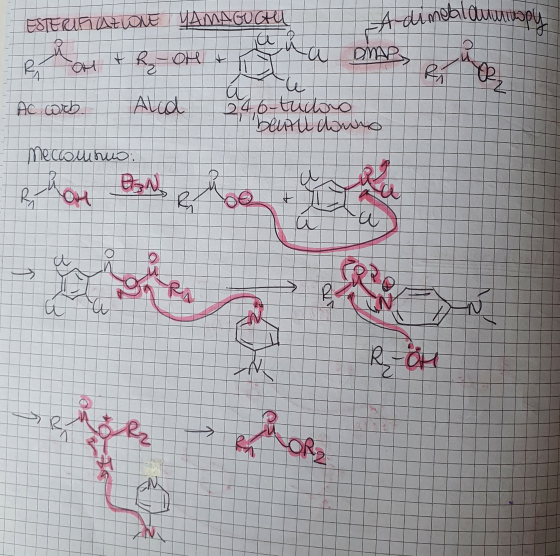 ESTERIFICAZIONE YAMAGUCHI
4-dimetilaminopy
O O
R1 OH + R2-OH + Cl Cl Cl Cl DMAP R1 OR2
Ac carb. Alcol 2,4,6-tricloro
benzoil cloruro
Meccanismo:
R1 OH Et3N R1 O⊖ + Cl Cl Cl Cl
→ Cl Cl Cl O O O R1 → R1 O N⊕ N
N N R2 ÖH
→ R1 O O+ R2 → R1 O OR2
H
N
N